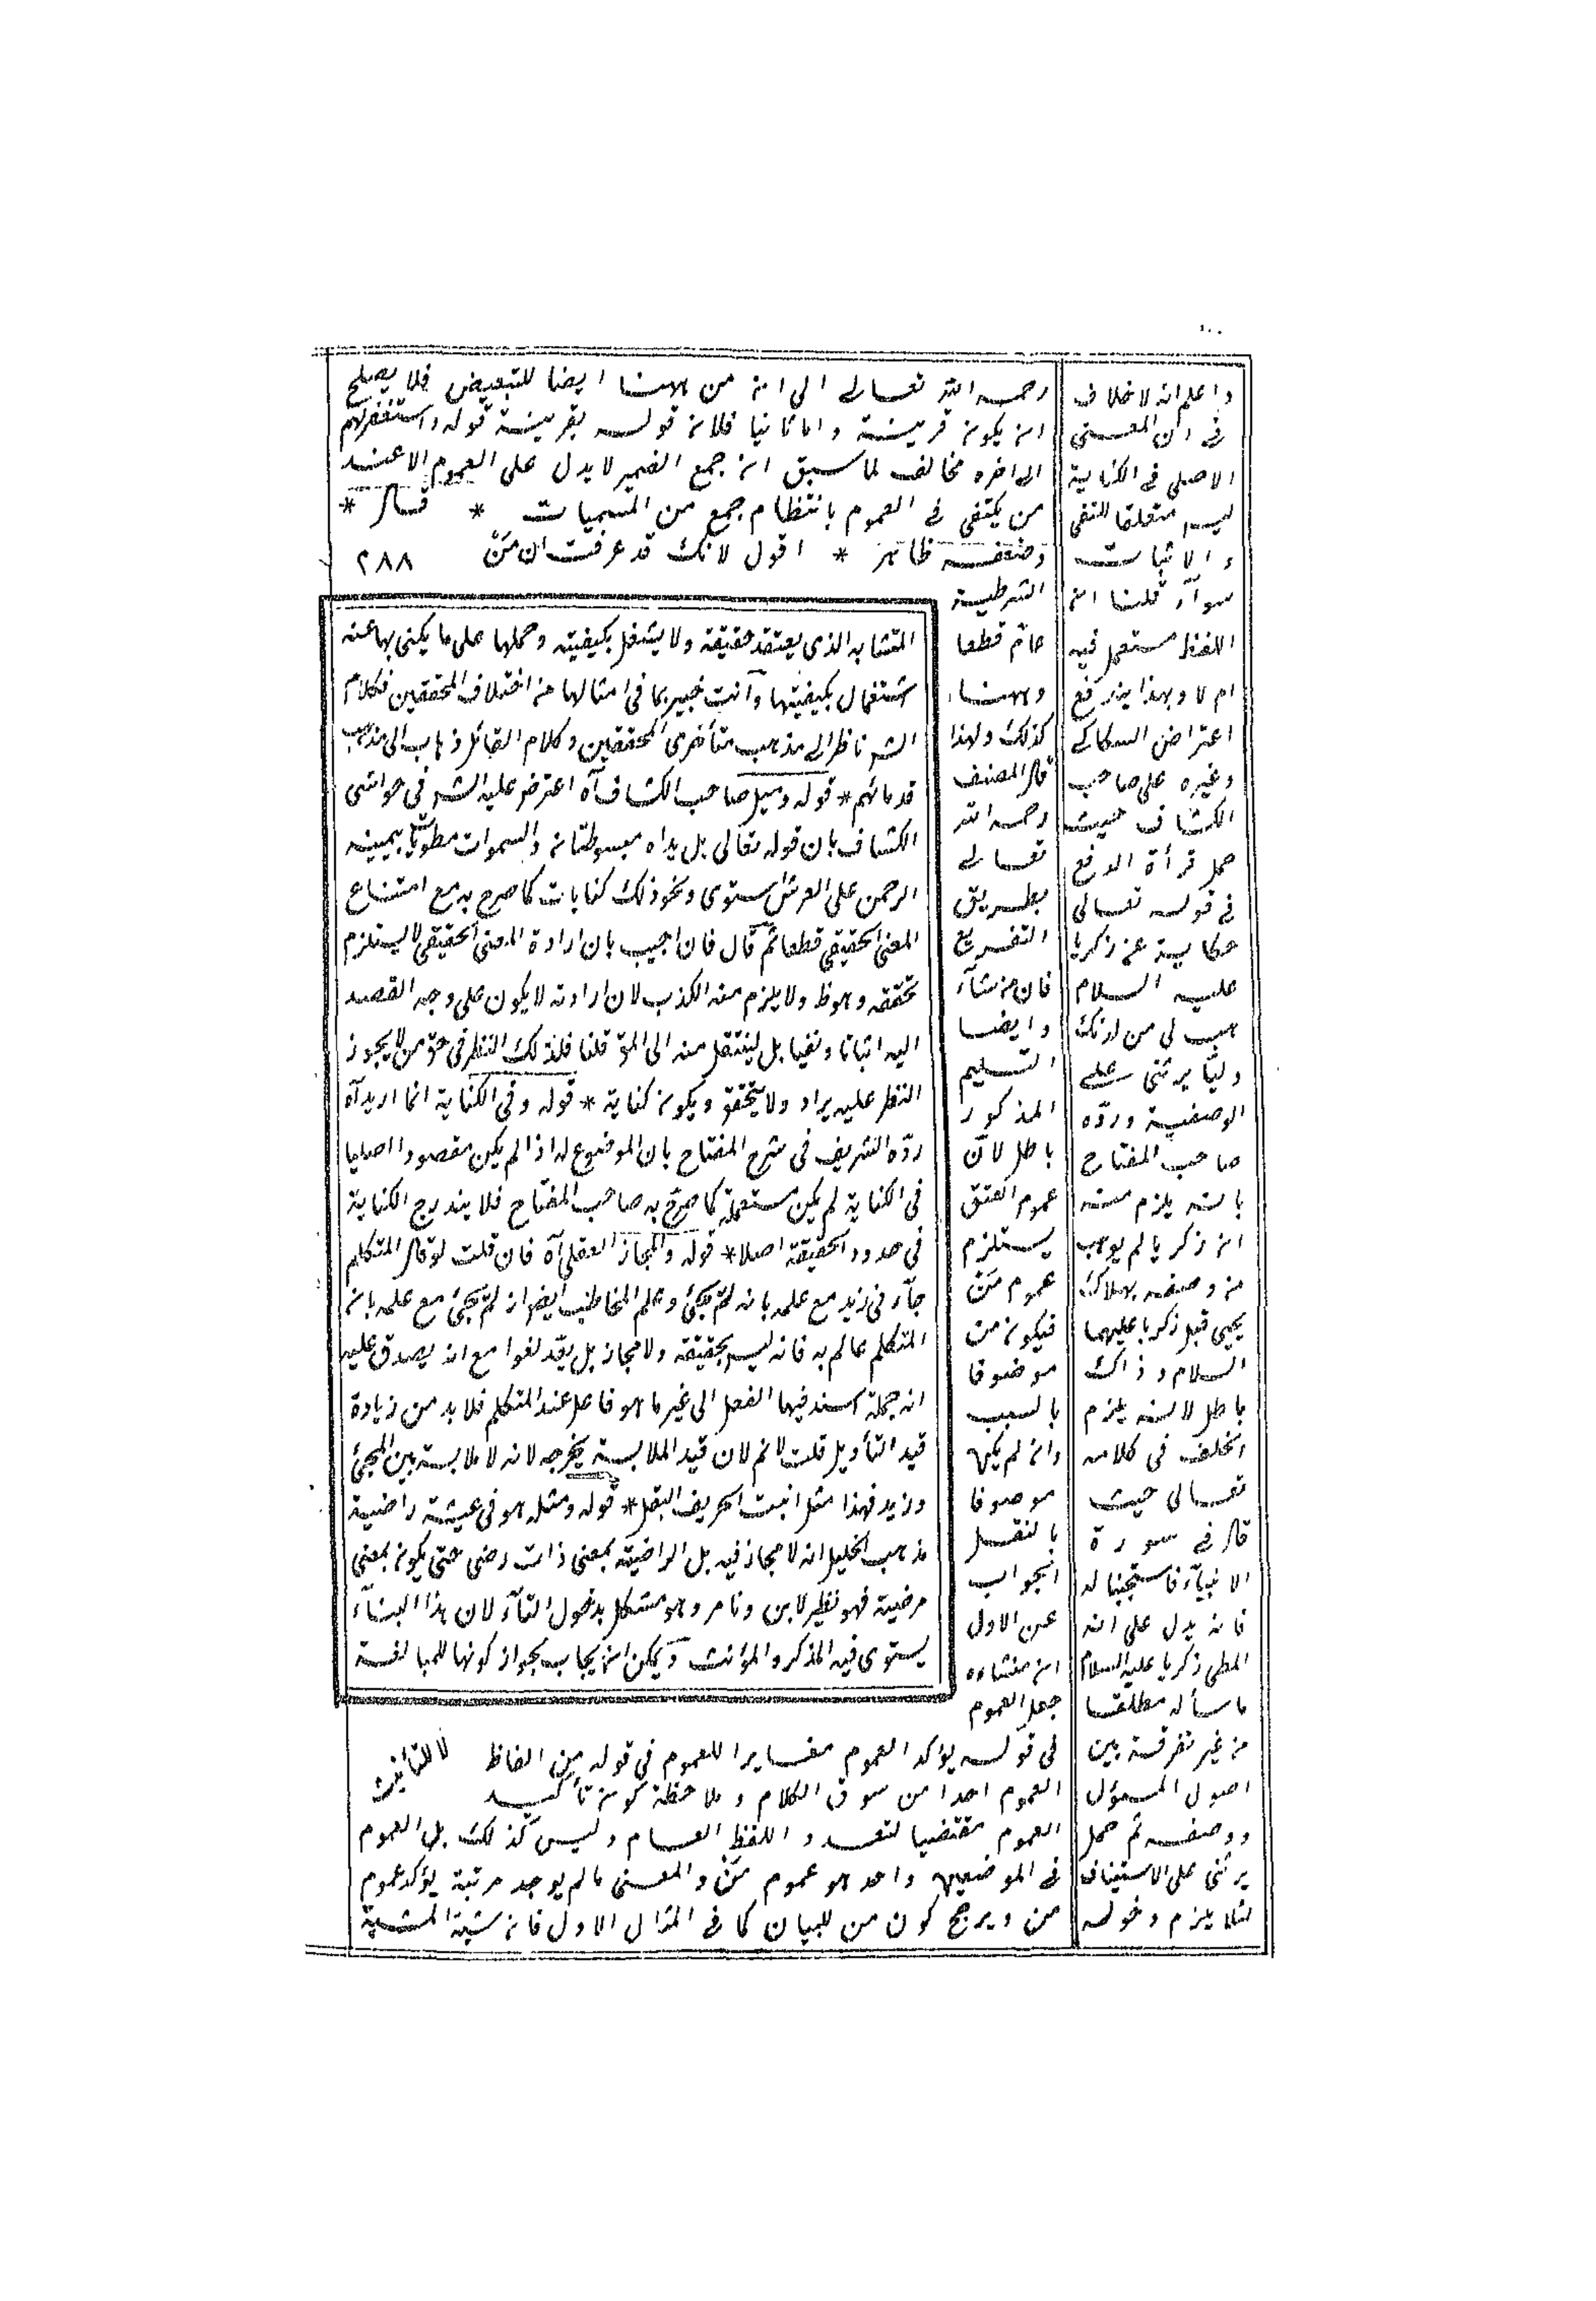 رحمه الله تعالى الى ان من ههنا ايضا للتبعيض فلا يصلح
ان يكون قرينة واما ثانيا فلان قوله بقرينة قوله واستغفر لهم
الى اخره مخالف لما سبق ان جمع الضمير لا يدل على العموم الا عند
من يكتفى فى العموم بانتظام جمع من المسميات * قال *
وضعفه ظاهر * اقول لانك قد عرفت ان مَنْ ٢٨٨
الشرطية
عام قطعا
وههنا
كذلك ولهذا
قال المصنف
رحمه الله
تعالى
بطريق
التفريع
فان من شاء
وايضا
التسليم
المذكور
باطل لان
عموم العتق
يستلزم
عموم مَنْ
فيكون من
موضوفا
بالسبب
وان لم يكن
موصوفا
بالنقل
الجواب
عن الاول
ان منشاءه
جعل العموم
فى قوله يؤكد العموم مغايرا للعموم فى قوله من الفاظ
العموم احدا من سوق الكلام وملاحظة كون تأكيد
العموم مقتضيا لتعدد اللفظ العام وليس كذلك بل العموم
فى الموضعين واحد هو عموم مَنْ والمعنى مالم يوجد مرتبة يؤكد عموم
من ويرجح كون من للبيان كما فى المثال الاول فان مشية المشية
المتشابه الذى يعتقد حقيقة ولا يشتغل بكيفيته وحملها على ما يكنى بها عنه
اشتغال بكيفيتها وانت خبير بما فى امثالها من اختلاف المحققين فكلام
الشر ناظر الى مذهب متأخرى المحققين وكلام القائل ذهاب الى مذهب
قدمائهم * قوله وميل صاحب الكشاف آه اعترض عليه الشر فى حواشى
الكشاف بان قوله تعالى بل يداه مبسوطتان والسموات مطويّات بيمينه
الرحمن على العرش استوى ونحو ذلك كنايات كما صرح به مع امتناع
المعنى الحقيقى قطعا ثم قال فان اجيب بان ارادة المعنى الحقيقى لا يستلزم
تحققه وهو ظ ولا يلزم منه الكذب لان ارادته لا يكون على وجه القصد
اليه اثباتا ونفيا بل لينتقل منه الى المق قلنا فلذلك النظر فى حق من لا يجوز
النظر عليه يراد ولا يتحقق ويكون كناية * قوله وفى الكناية انما اريد آه
ردّه الشريف فى شرح المفتاح بان الموضوع له اذا لم يكن مقصودا اصليا
فى الكناية لم يكن مستعملة كما صرّح به صاحب المفتاح فلا يندرج الكناية
فى حدود الحقيقة اصلا * قوله والمجاز العقلى آه فان قلت لو قال المتكلم
جآءنى زيد مع علمه بانه لم يجئ وعلم المخاطب ايض انه لم يجئ مع علمه بان
المتكلم عالم به فانه ليس بحقيقة ولا مجاز بل يعدّ لغوا مع انه يصدق عليه
انه جملة اسند فيها الفعل الى غير ما هو فاعل عند المتكلم فلا بد من زيادة
قيد التأويل قلت لا نم لان قيد الملابسة يخرجه لانه لا ملابسة بين المجئ
وزيد فهذا مثل انبت الخريف البقل * قوله ومثله هو فى عيشة راضية
مذهب الخليل انه لا مجاز فيه بل الراضية بمعنى ذات رضى حتى يكون بمعنى
مرضية فهو نظير لابن وتامر وهو مشكل بدخول التآء لان هذا البنآء
يستوى فيه المذكر والمؤنث ويمكن ان يجاب بجواز كونها للمبالغة
لا للتأنيث
واعلم انه لا خلاف
فى ان المعنى
الاصلى فى الكناية
ليس متعلقا للنفى
والاثبات
سوآء قلنا ان
اللفظ مستعمل فيه
ام لا وبهذا يندفع
اعتراض السكاكى
وغيره على صاحب
الكشاف حيث
حمل قرأة الرفع
فى قوله تعالى
حكاية عن زكريا
عليه السلام
هب لى من لدنك
وليّا يرثنى على
الوصفية وردّه
صاحب المفتاح
بانه يلزم منه
ان زكريا لم يوهب
من وصفه بهلاك
يحيى قبل زكريا عليهما
السلام وذاك
باطل لانه يلزم
الخلف فى كلامه
تعالى حيث
قال فى سورة
الانبيآء فاستجبنا له
فانه يدل على انه
اعطى زكريا عليه السلام
ما سأله مطلقا
من غير تفرقة بين
اصول المسؤل
ووصفه ثم حمل
يرثنى على الاستيناف
لئلا يلزم دخوله